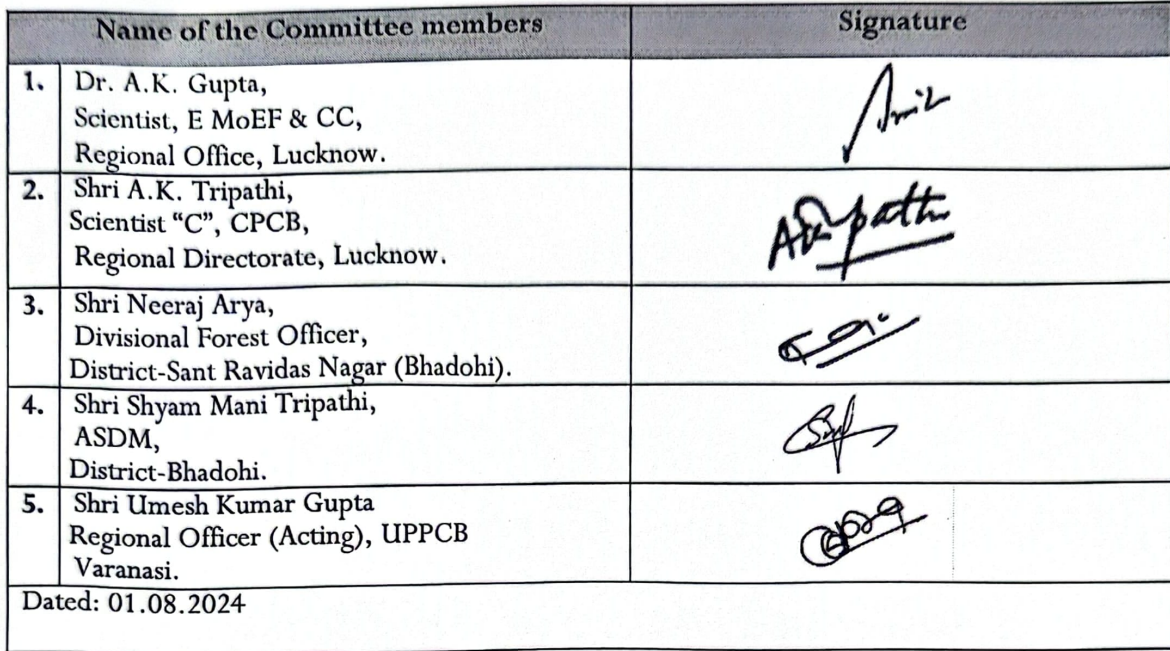 Name of the Committee members Signature
1. Dr. A.K. Gupta,
Scientist, E MoEF & CC,
Regional Office, Lucknow.
2. Shri A.K. Tripathi,
Scientist “C”, CPCB,
Regional Directorate, Lucknow.
3. Shri Neeraj Arya,
Divisional Forest Officer,
District-Sant Ravidas Nagar (Bhadohi).
4. Shri Shyam Mani Tripathi,
ASDM,
District-Bhadohi.
5. Shri Umesh Kumar Gupta
Regional Officer (Acting), UPPCB
Varanasi.
Dated: 01.08.2024